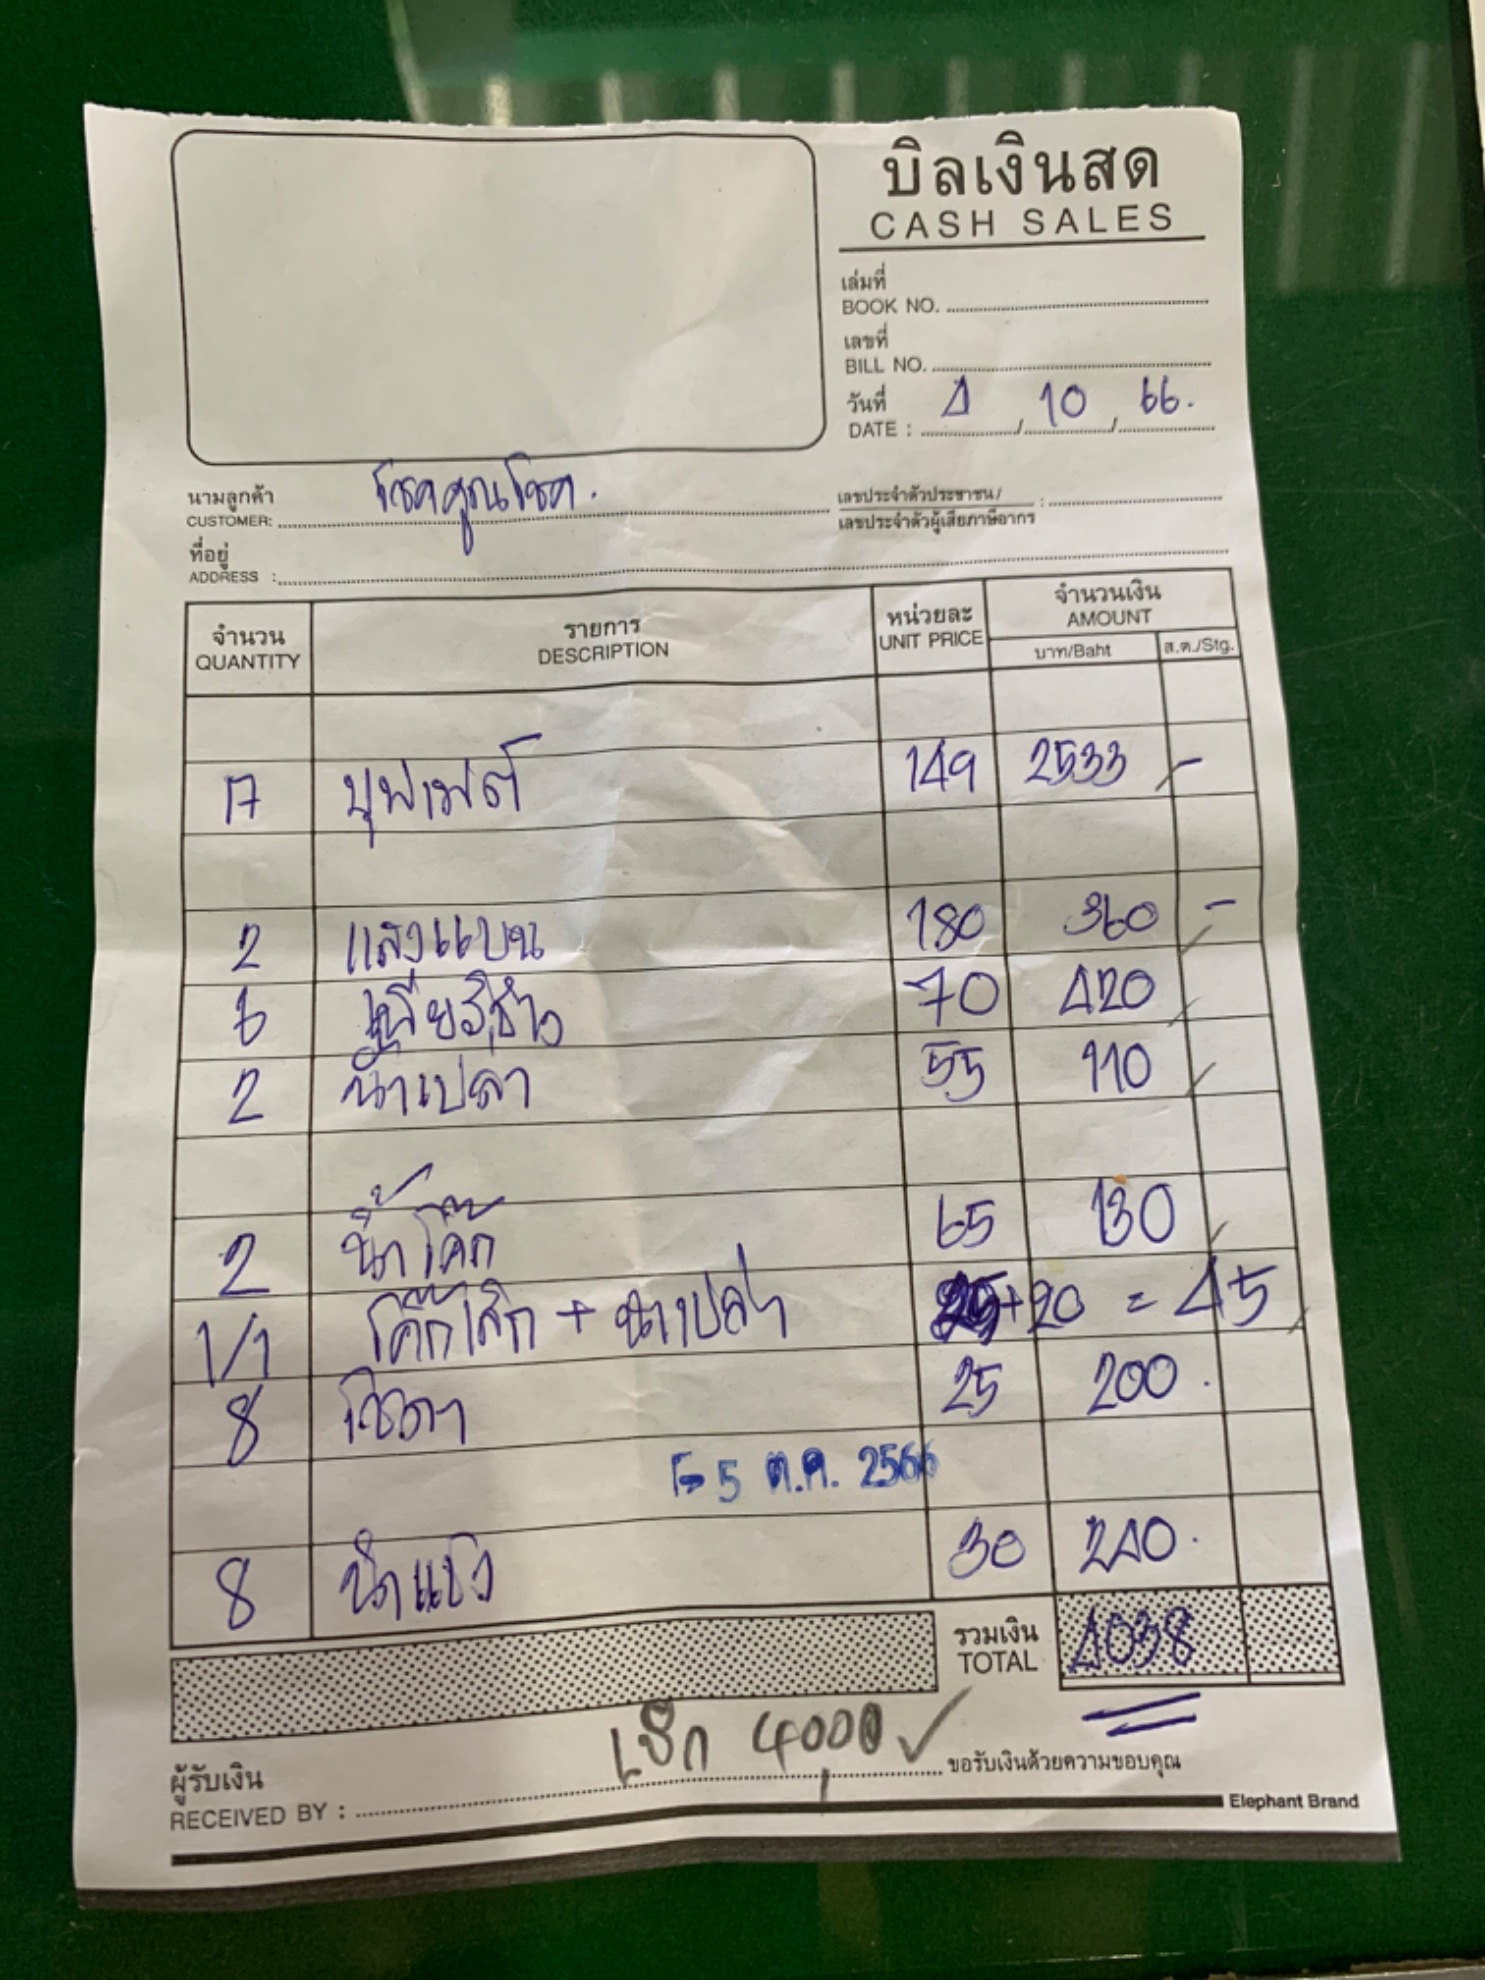 บิลเงินสด
CASH SALES
เล่มที่
BOOK NO.
เลขที่
BILL NO.
วันที่
DATE : 4 / 10 / 66.
นามลูกค้า
CUSTOMER: โชคคูณโชค.
เลขประจำตัวประชาชน/ :
เลขประจำตัวผู้เสียภาษีอากร
ที่อยู่
ADDRESS :
จำนวน รายการ หน่วยละ จำนวนเงิน
QUANTITY DESCRIPTION UNIT PRICE AMOUNT
บาท/Baht ส.ต./Stg.
17 บุฟเฟต์ 149 2533 -
2 แสงแบน 180 360 -
6 เบียร์ช้าง 70 420
2 น้ำเปล่า 55 110
2 น้ำโค๊ก 65 130
1/1 โค๊กเล็ก + น้ำเปล่า 25+20 = 45
8 โซดา 25 200.
5 ต.ค. 2566
8 น้ำแข็ง 30 240.
รวมเงิน
TOTAL 4038
เช็ก 4,000 ✓
ผู้รับเงิน
RECEIVED BY :
ขอรับเงินด้วยความขอบคุณ
Elephant Brand